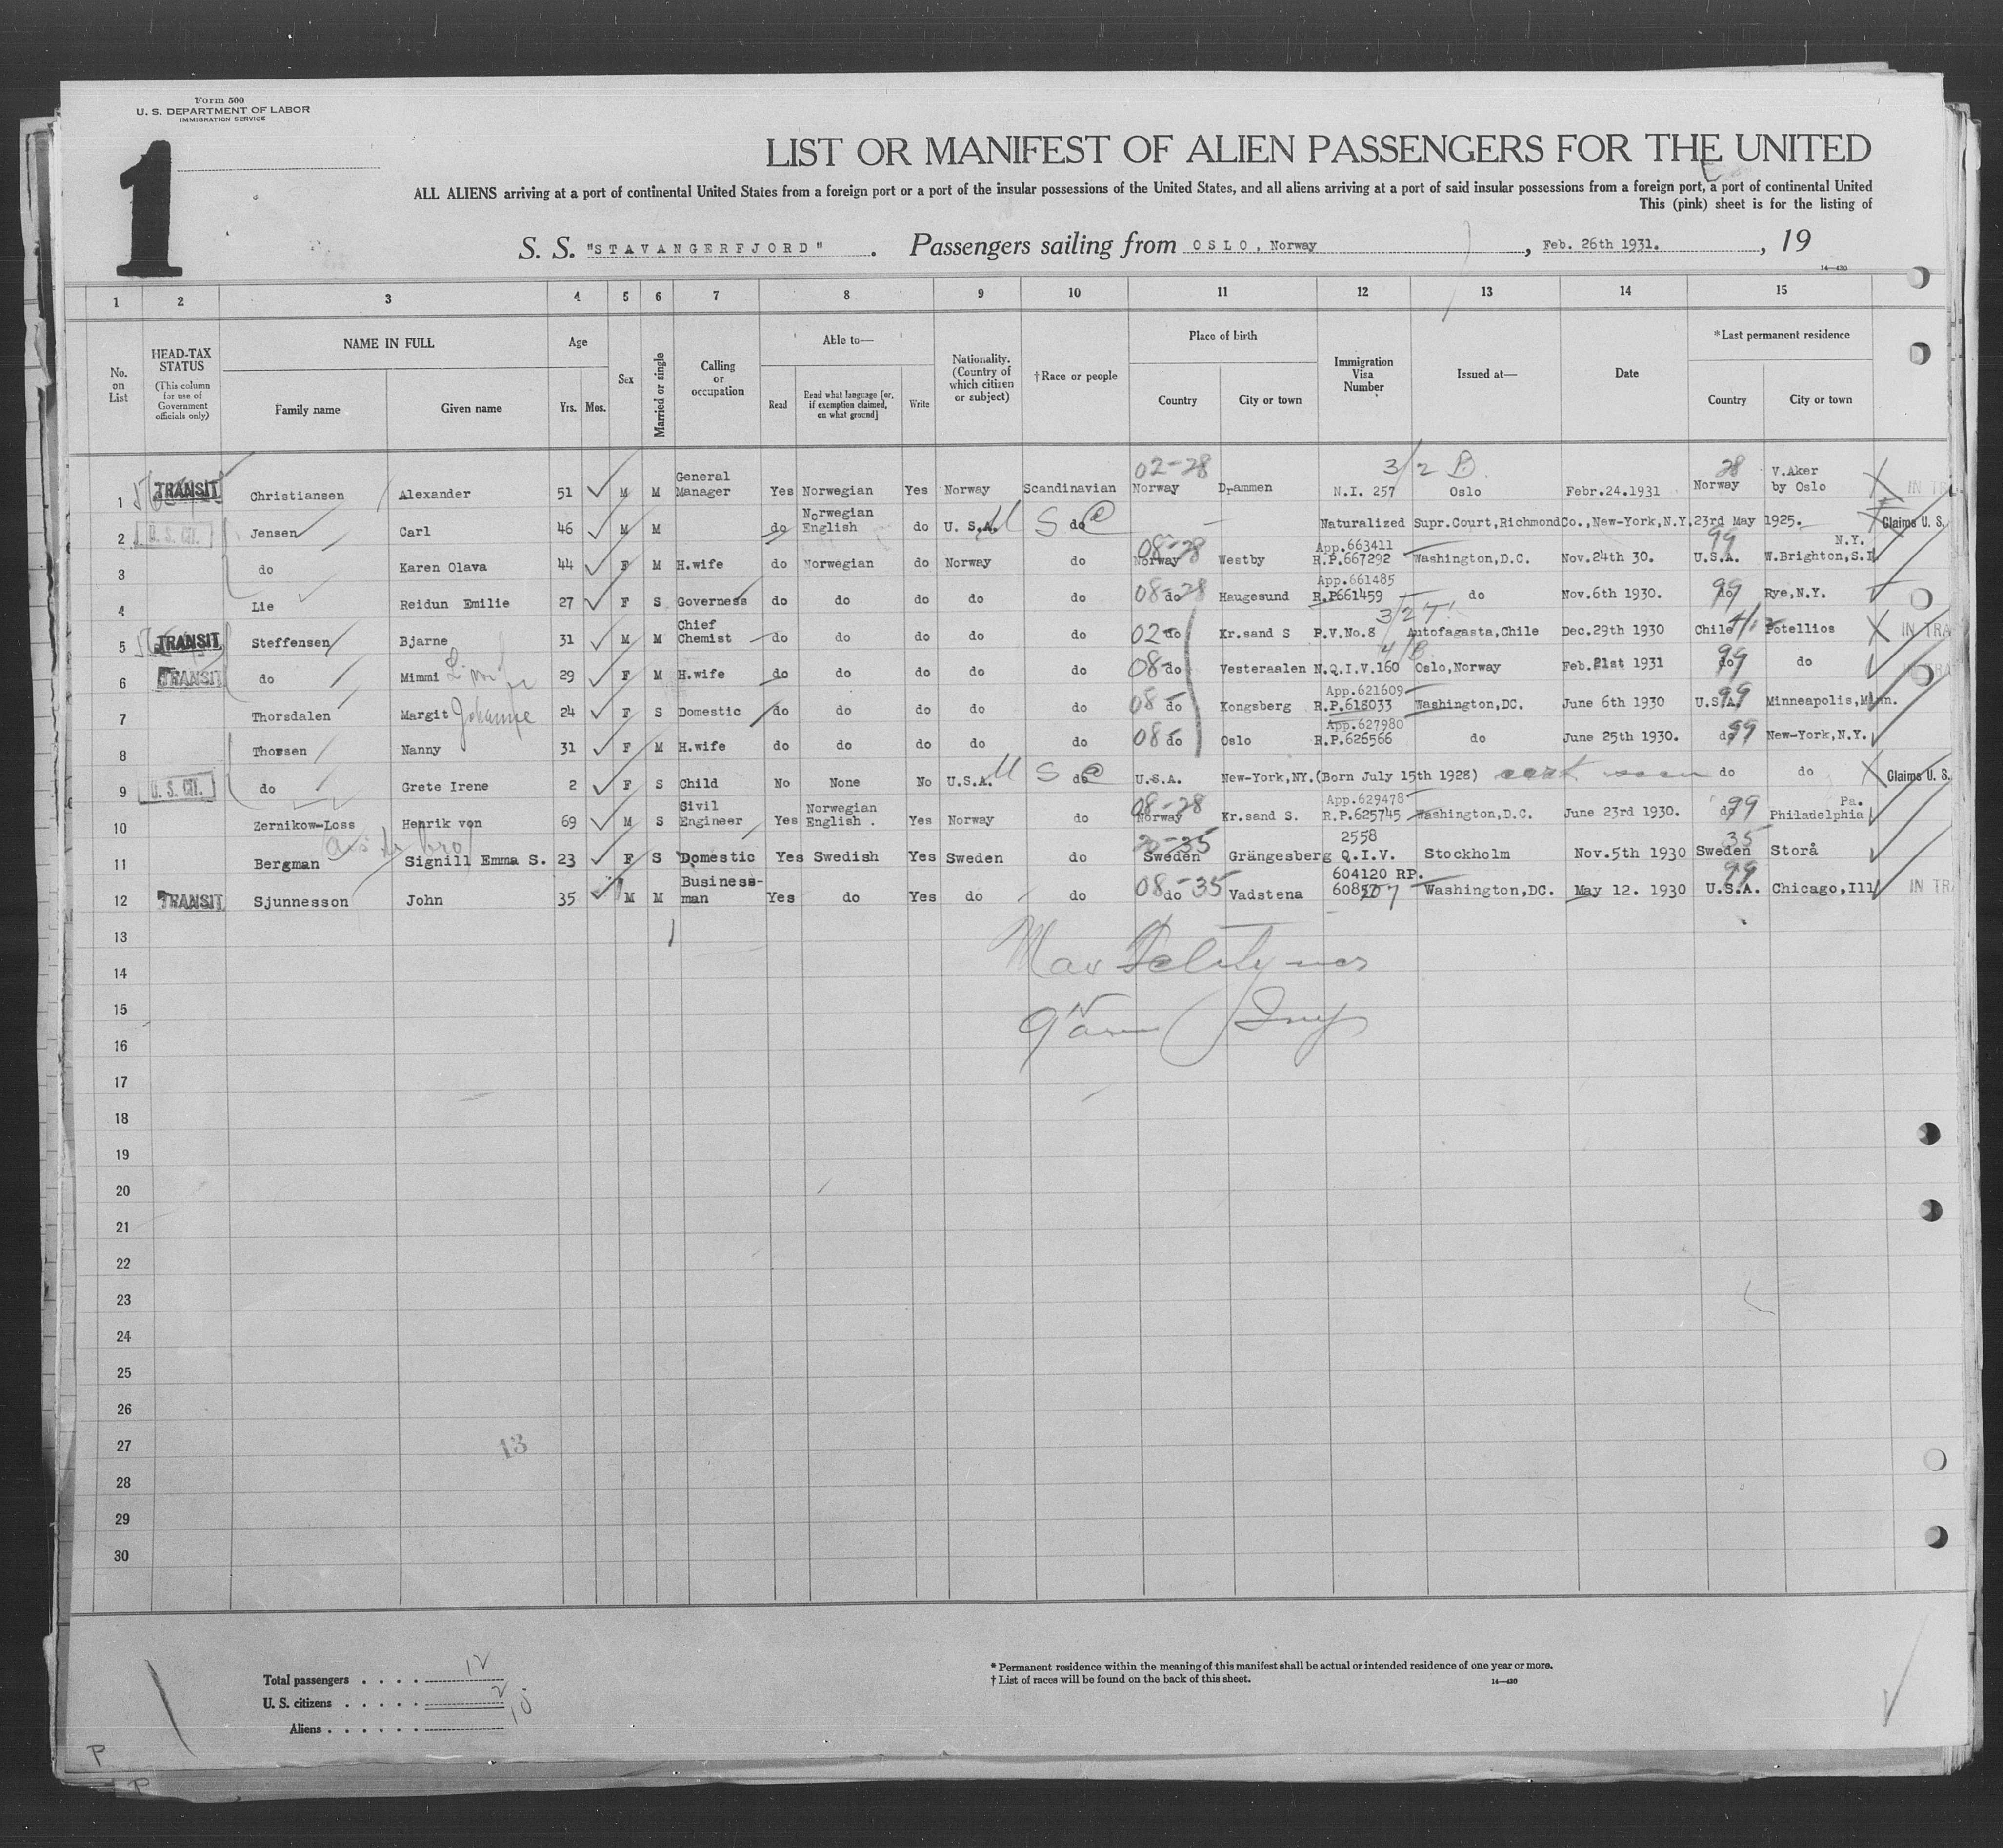 Form 500
U. S. DEPARTMENT OF LABOR
IMMIGRATION SERVICE
1
LIST OR MANIFEST OF ALIEN PASSENGERS FOR THE UNITED
ALL ALIENS arriving at a port of continental United States from a foreign port or a port of the insular possessions of the United States, and all aliens arriving at a port of said insular possessions from a foreign port, a port of continental United
This (pink) sheet is for the listing of
S. S. "STAVANGERFJORD". Passengers sailing from OSLO, Norway, Feb. 26th 1931., 19
14—430
1 2 3 4 5 6 7 8 9 10 11 12 13 14 15
No. on List
HEAD-TAX STATUS (This column for use of Government officials only)
NAME IN FULL Family name Given name
Age Yrs. Mos.
Sex
Married or single
Calling or occupation
Able to— Read Read what language [or, if exemption claimed, on what ground] Write
Nationality. (Country of which citizen or subject)
†Race or people
Place of birth Country City or town
Immigration Visa Number
Issued at—
Date
*Last permanent residence Country City or town
02-28 3/2 B. 28
1 TRANSIT Christiansen Alexander 51 M M General Manager Yes Norwegian Yes Norway Scandinavian Norway Drammen N.I. 257 Oslo Febr.24.1931 Norway V.Aker by Oslo IN TR
2 U. S. CIT. Jensen Carl 46 M M do Norwegian English do U. S.A. S do Naturalized Supr.Court,RichmondCo.,New-York,N.Y.23rd May 1925. Claims U. S.
3 do Karen Olava 44 F M H.wife do Norwegian do Norway do 08-28 Norway Westby App.663411 R.P.667292 Washington,D.C. Nov.24th 30. 99 U.S.A. N.Y. W.Brighton,S.I
4 Lie Reidun Emilie 27 F S Governess do do do do do 08-28 do Haugesund App.661485 R.P661459 do Nov.6th 1930. 99 do Rye,N.Y.
5 TRANSIT Steffensen Bjarne 31 M M Chief Chemist do do do do do 02 do Kr.sand S P.V.No.8 3/2 T Autofagasta,Chile Dec.29th 1930 Chile Potellios IN TRA
6 TRANSIT do Mimmi 29 F M H.wife do do do do do 08 do Vesteraalen N.Q.I.V.160 4/B Oslo,Norway Feb.21st 1931 99 do do
7 Thorsdalen Margit Johanne 24 F S Domestic do do do do do 08 do Kongsberg App.621609 R.P.618033 Washington,DC. June 6th 1930 99 U.S.A. Minneapolis,Minn.
8 Thorsen Nanny 31 F M H.wife do do do do do 08 do Oslo App.627980 R.P.626566 do June 25th 1930. 99 do New-York,N.Y.
9 U. S. CIT. do Grete Irene 2 F S Child No None No U.S.A. S do U.S.A. New-York,NY.(Born July 15th 1928) cert seen do do Claims U. S.
10 Zernikow-Loss Henrik von 69 M S Civil Engineer Yes Norwegian English . Yes Norway do 08-28 Norway Kr.sand S. App.629478 R.P.625745 Washington,D.C. June 23rd 1930. 99 do Pa. Philadelphia
11 Bergman Signill Emma S. 23 F S Domestic Yes Swedish Yes Sweden do 35 Sweden Grängesberg 2558 Q.I.V. Stockholm Nov.5th 1930 35 Sweden Storå
12 TRANSIT Sjunnesson John 35 M M Business-man Yes do Yes do do 08-35 do Vadstena 604120 RP. Washington,DC. May 12. 1930 99 U.S.A. Chicago,Ill IN TRA
13
14
15
16
17
18
19
20
21
22
23
24
25
26
27
13
28
29
30
Total passengers . . . . 12
U. S. citizens . . . . . 2
Aliens . . . . . . 10
* Permanent residence within the meaning of this manifest shall be actual or intended residence of one year or more.
† List of races will be found on the back of this sheet.
14—430
P
P